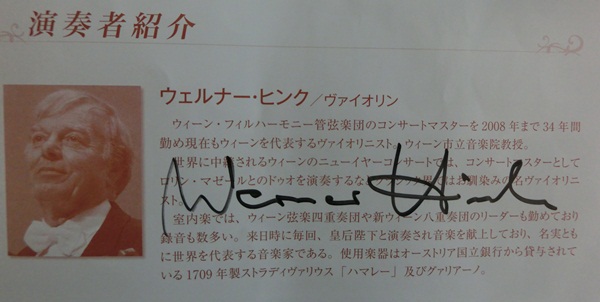 演奏者紹介
ウェルナー・ヒンク／ヴァイオリン
ウィーン・フィルハーモニー管弦楽団のコンサートマスターを2008年まで34年間
勤め現在もウィーンを代表するヴァイオリニスト。ウィーン市立音楽院教授。
世界に中継されるウィーンのニューイヤーコンサートでは、コンサートマスターとして
ロリン・マゼールとのドゥオを演奏するなどクラシック界ではお馴染みの名ヴァイオリニ
スト。
室内楽では、ウィーン弦楽四重奏団や新ウィーン八重奏団のリーダーも勤めており
録音も数多い。来日時に毎回、皇后陛下と演奏され音楽を献上しており、名実とも
に世界を代表する音楽家である。使用楽器はオーストリア国立銀行から貸与されて
いる1709年製ストラディヴァリウス「ハマレー」及びグァリアーノ。
Werner Hink